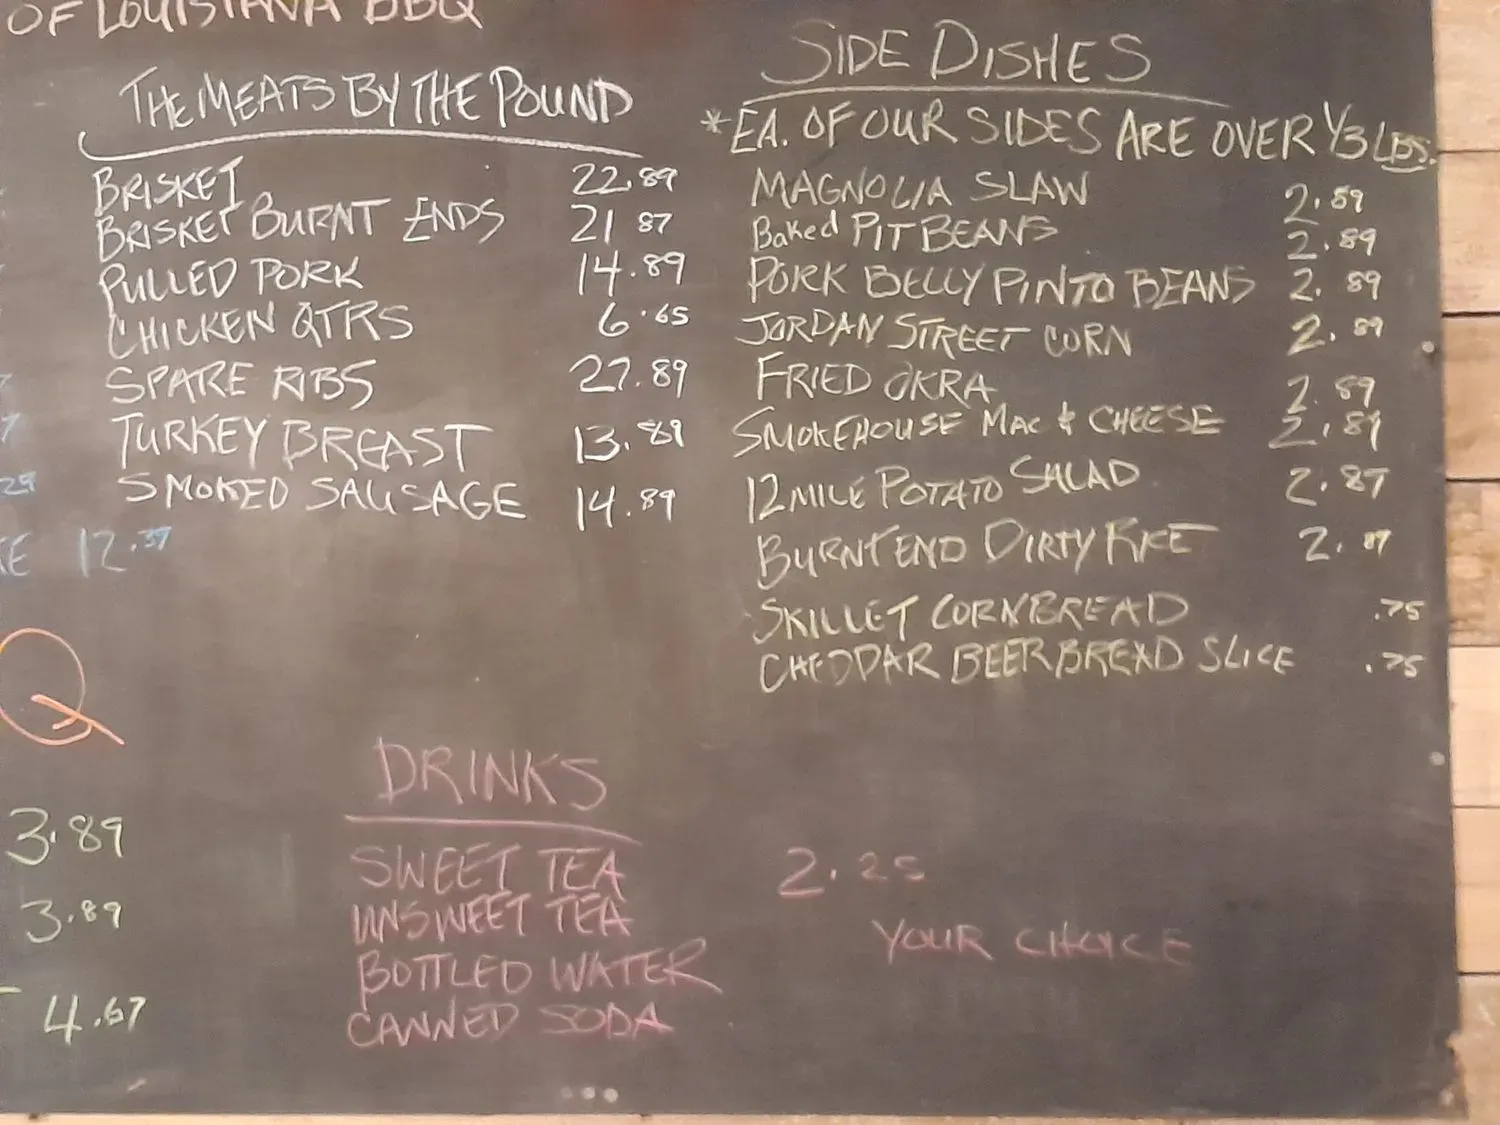 OF LOUISIANA BBQ
THE MEATS BY THE POUND
BRISKET 22.89
BRISKET BURNT ENDS 21 87
PULLED PORK 14.89
CHICKEN QTRS 6.65
SPARE RIBS 27.89
TURKEY BREAST 13.89
SMOKED SAUSAGE 14.89
29
12.39
Q
3.89
3.89
4.67
SIDE DISHES
*EA. OF OUR SIDES ARE OVER 1/3 LBS.
MAGNOLIA SLAW 2.89
Baked PIT BEANS 2.89
PORK BELLY PINTO BEANS 2.89
JORDAN STREET CORN 2.89
FRIED OKRA 2.89
SMOKEHOUSE MAC & CHEESE 2.89
12 MILE POTATO SALAD 2.87
BURNT END DIRTY RICE 2.87
SKILLET CORNBREAD .75
CHEDDAR BEER BREAD SLICE .75
DRINKS
SWEET TEA 2.25
UNSWEET TEA YOUR CHOICE
BOTTLED WATER
CANNED SODA